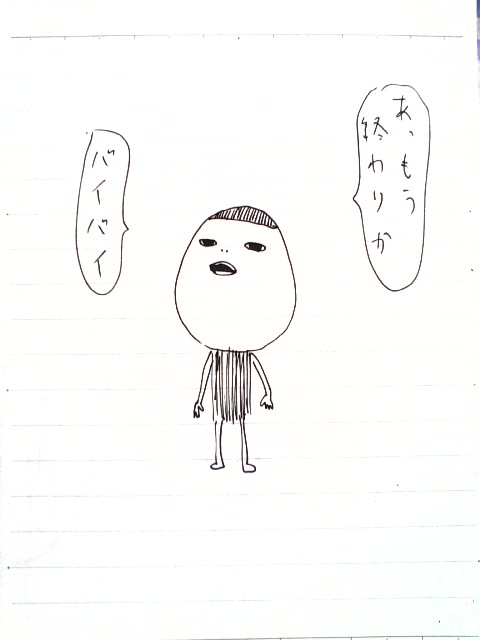 あ、もう
終わりか
バイバイ